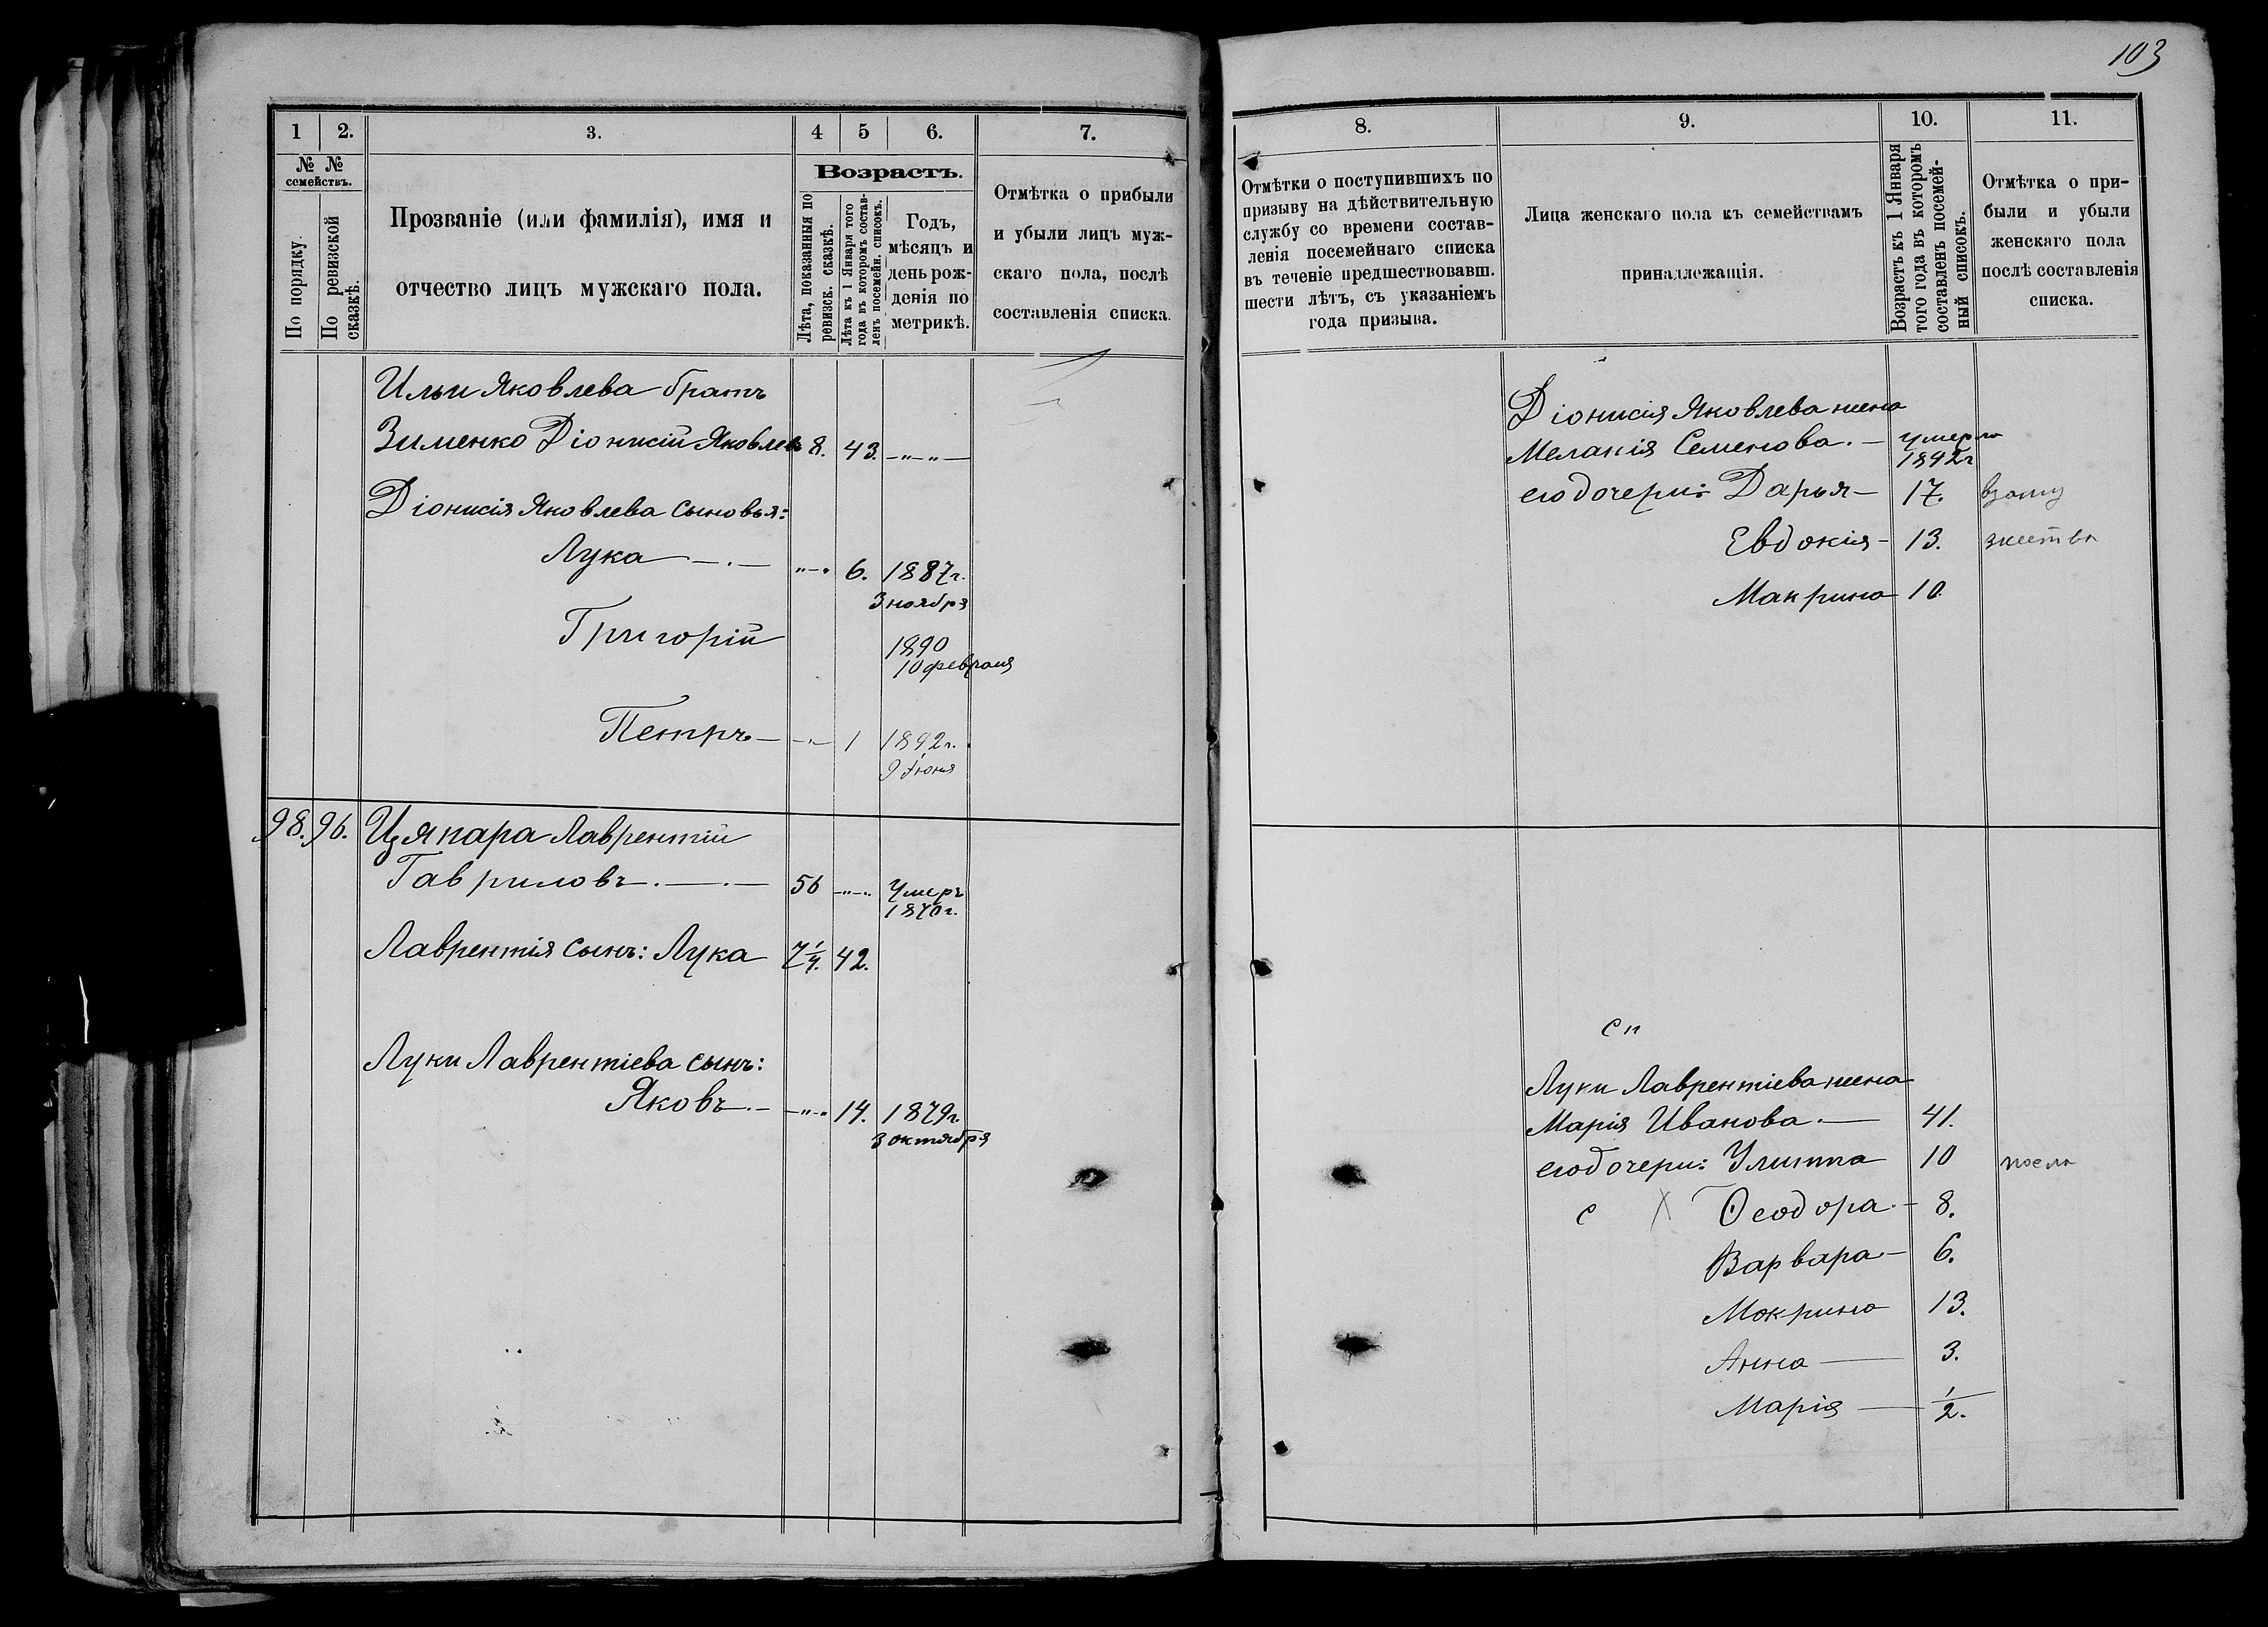 103
1
2.
3.
4
5
6.
7.
№ №
семействъ.
По порядку.
По ревизской
сказкѣ.
Прозваніе (или фамилія), имя и
отчество лицъ мужскаго пола.
Возрастъ.
Лѣта, показанныя по
ревизск. сказкѣ.
Лѣта къ 1 Января того
года въ которомъ состав-
ленъ посемейн. списокъ.
Годъ,
мѣсяцъ и
день рож-
денія по
метрикѣ.
Отмѣтка о прибыли
и убыли лицъ муж-
скаго пола, послѣ
составленія списка.
Ильи Яковлева братъ
Зименко Діонисій Яковлев 8. 43. -"-"-
Діонисія Яковлева сыновья:
Лука -.- "-" 6. 1887г.
3 ноября
Григорій 1890
10 февраля
Петръ - -"- 1 1892г.
9 Іюня
98. 96. Цяпара Лаврентій
Гавриловъ. -.- 56 -"-". Умеръ
1870г.
Лаврентія сынъ: Лука 7 1/4. 42.
Луки Лаврентіева сынъ:
Яковъ. - -"-" 14. 1879г.
3 октября
8.
9.
10.
11.
Отмѣтки о поступившихъ по
призыву на дѣйствительную
службу со времени состав-
ленія посемейнаго списка
въ теченіе предшествовавш.
шести лѣтъ, съ указаніемъ
года призыва.
Лица женскаго пола къ семействамъ
принадлежащія.
Возрастъ къ 1 Января
того года въ которомъ
составленъ посемей-
ный списокъ.
Отмѣтка о при-
были и убыли
женскаго пола
послѣ составленія
списка.
Діонисія Яковлева жена
Меланія Семенова. - умерла
1892г
его дочери: Дарья - 17.
Евдокія - 13.
Макрина 10.
Луки Лаврентіева жена
Марія Иванова. - 41.
его дочери: Улитта 10
с X Ѳеодора. - 8.
Варвара - 6.
Мокрина 13.
Анна - 3.
Марія - 1/2.